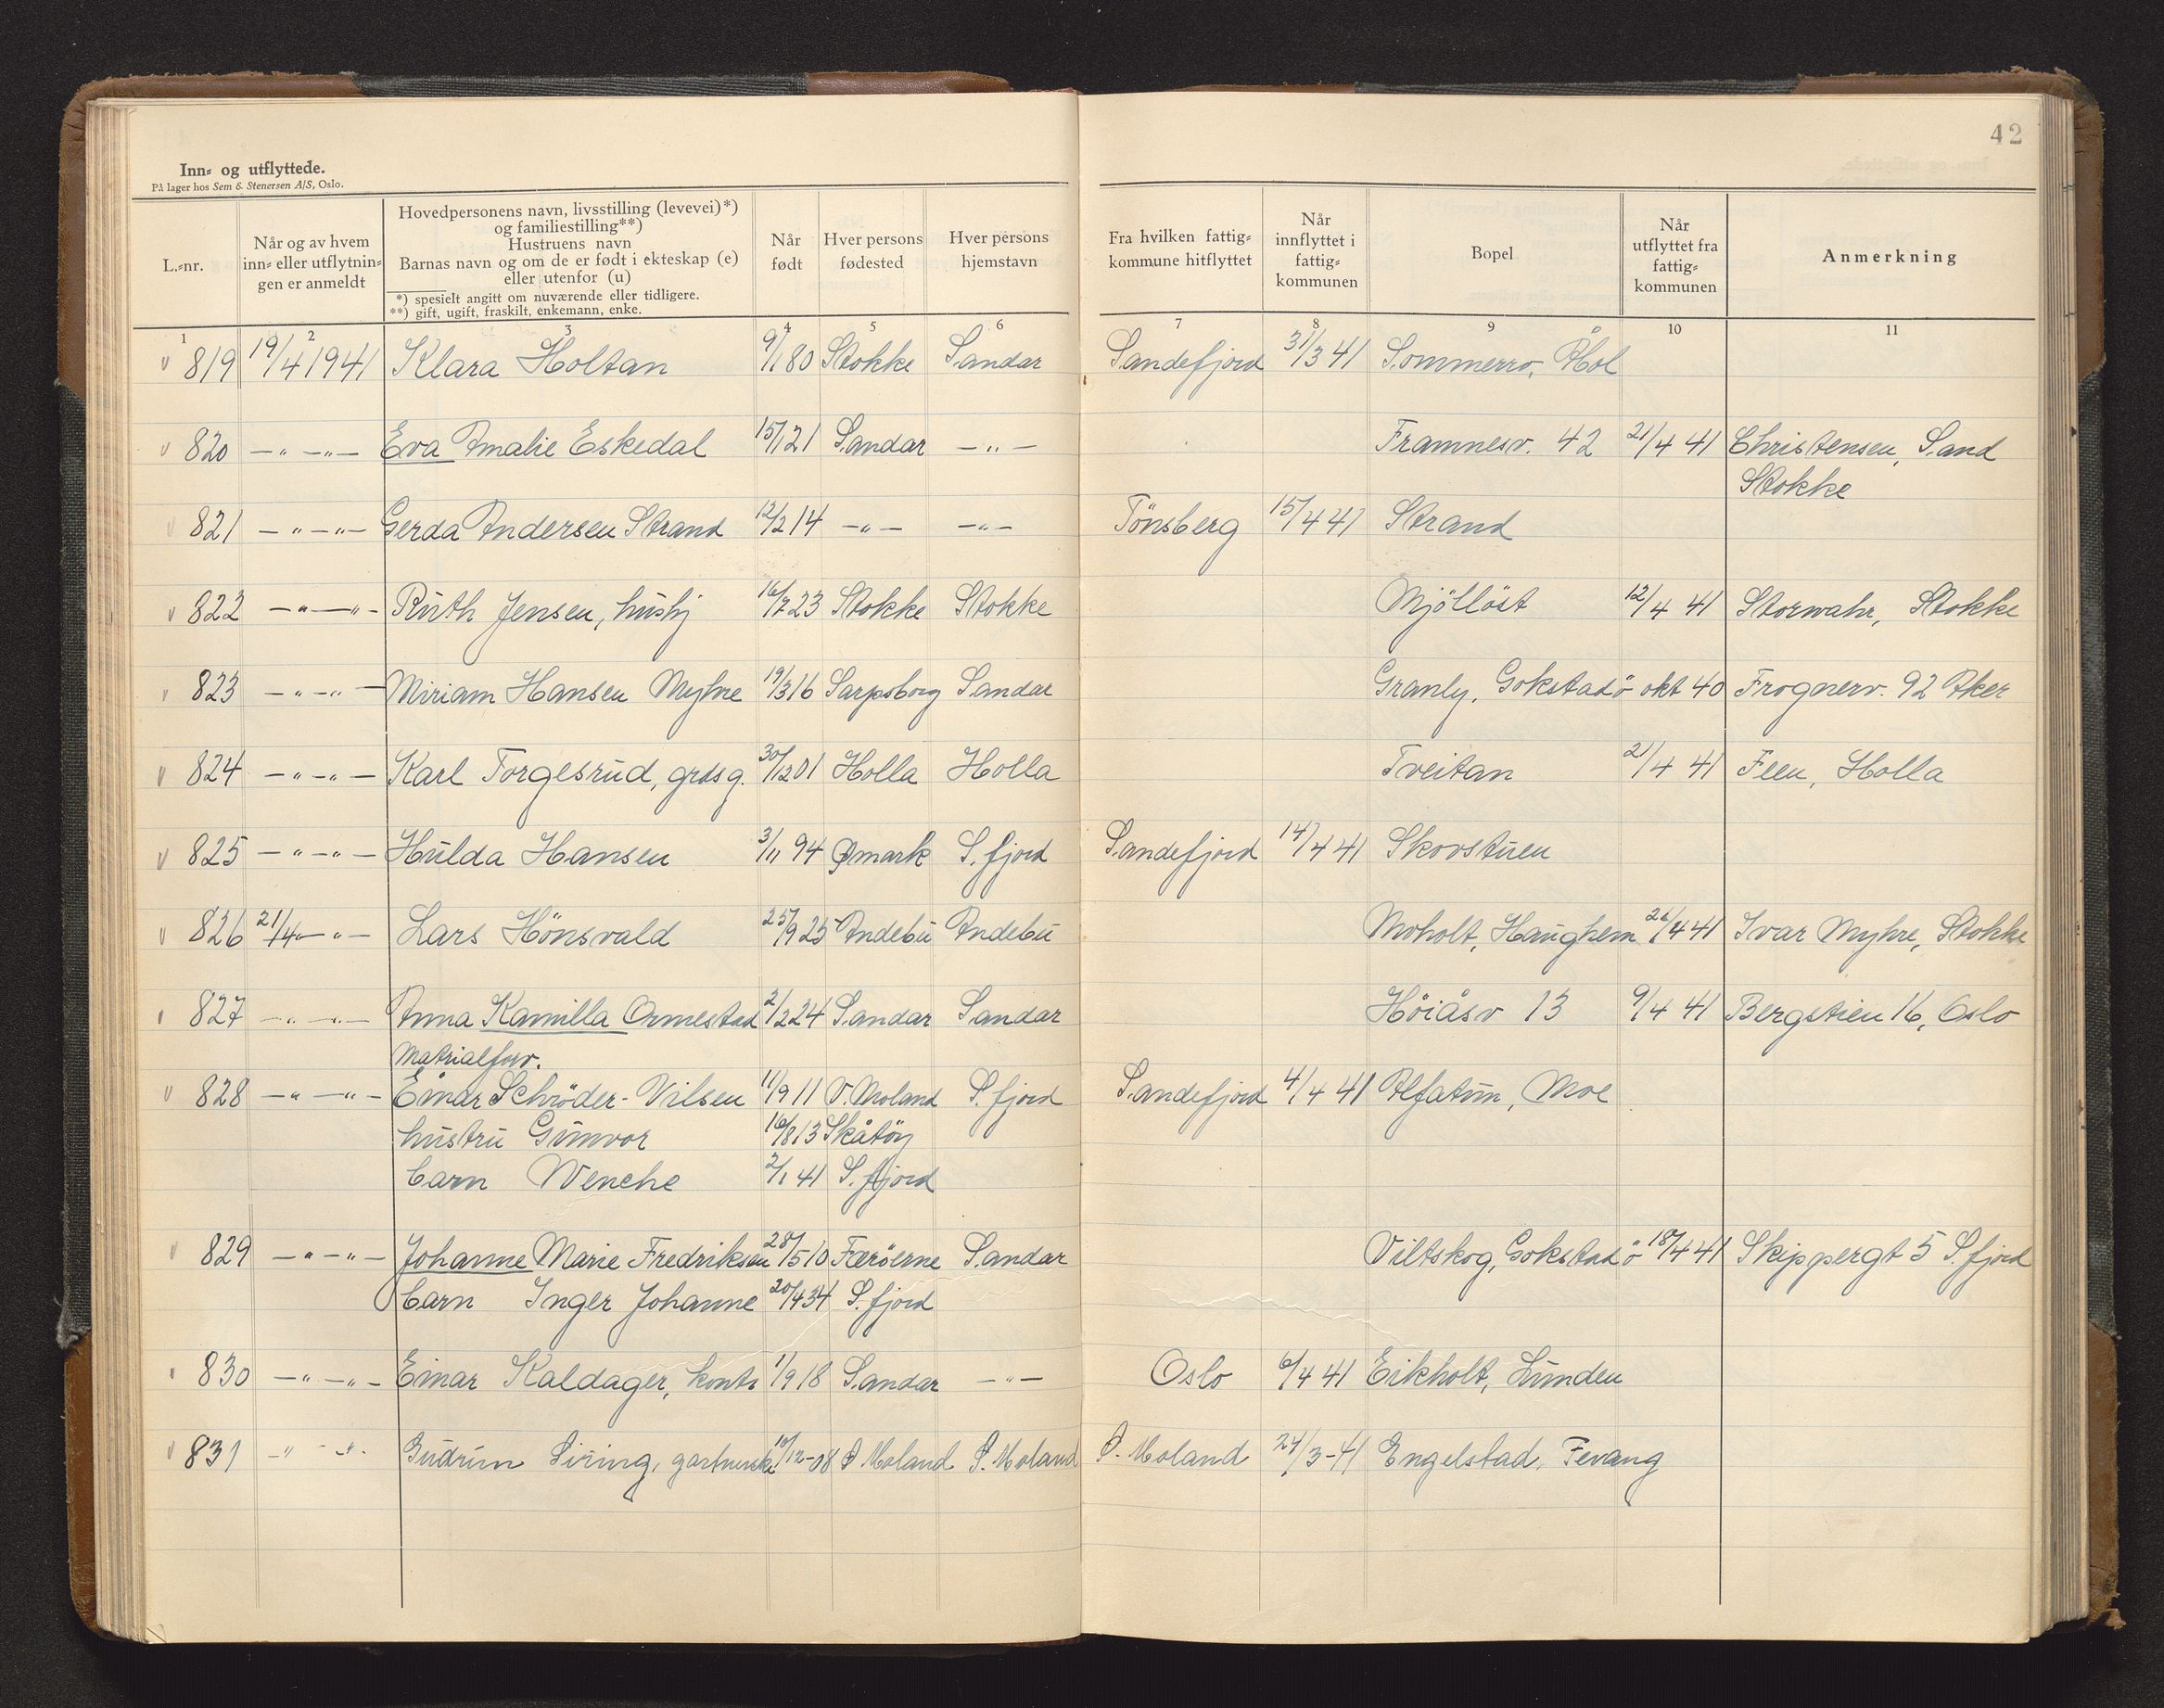 42
Inn- og utflyttede.
På lager hos Sem & Stenersen A/S, Oslo.
L.-nr.
Når og av hvem inn- eller utflytnin-gen er anmeldt
Hovedpersonens navn, livsstilling (levevei)*)
og familiestilling**)
Hustruens navn
Barnas navn og om de er født i ekteskap (e)
eller utenfor (u)
*) spesielt angitt om nuværende eller tidligere.
**) gift, ugift, fraskilt, enkemann, enke.
Når født
Hver persons fødested
Hver persons hjemstavn
Fra hvilken fattig-kommune hitflyttet
Når innflyttet i fattig-kommunen
Bopel
Når utflyttet fra fattig-kommunen
Anmerkning
1 2 3 4 5 6 7 8 9 10 11
819 19/4 1941 Klara Holtan 9/1 80 Stokke Sandar Sandefjord 31/3 41 Sommerro, Hol
820 —"— —"— Eva Amalie Eskedal 15/1 21 Sandar —"— Framnesv. 42 21/4 41 Christensen, Sand
Stokke
821 —"—"— Gerda Andersen Strand 12/2 14 —"— —"— Tönsberg 15/4 41 Strand
822 —"—"— Ruth Jensen, hushj 16/7 23 Stokke Stokke Mjölløst 12/4 41 Storwahr, Stokke
823 —"—"— Miriam Hansen Myhre 19/3 16 Sarpsborg Sandar Granly, Gokstadö okt 40 Frognerv. 92 Aker
824 —"—"— Karl Torgesrud, grdsg. 30/12 01 Holla Holla Tveitan 21/4 41 Feen, Holla
825 —"—"— Hulda Hansen 3/11 94 Ømark S.fjord Sandefjord 14/4 41 Skovstuen
826 21/4 —"— Lars Hönsvald 25/9 25 Andebu Andebu Moholt, Haughem 26/4 41 Ivar Myhre, Stokke
827 —"—"— Anna Kamilla Ormestad 2/2 24 Sandar Sandar Höiåsv 13 9/4 41 Bergstien 16, Oslo
Matrialforv.
828 —"—"— Einar Schröder-Nilsen 11/9 11 V. Moland S.fjord Sandefjord 4/4 41 Alfatun, Moe
hustru Gunvor 16/8 13 Skåtöy
barn Wenche 2/1 41 S.fjord
829 —"—"— Johanne Marie Fredriksen 28/5 10 Færöerne Sandar Viltskog, Gokstadö 18/4 41 Skippergt 5 S.fjord
barn Inger Johanne 20/4 34 S.fjord
830 —"—"— Einar Kaldager, kontr 1/9 18 Sandar —"— Oslo 6/4 41 Eikholt, Lunden
831 —"—"— Gudrun Siring, gartnerske /12-08 Ø Moland Ø. Moland Ø. Moland 24/3-41 Engelstad, Fevang